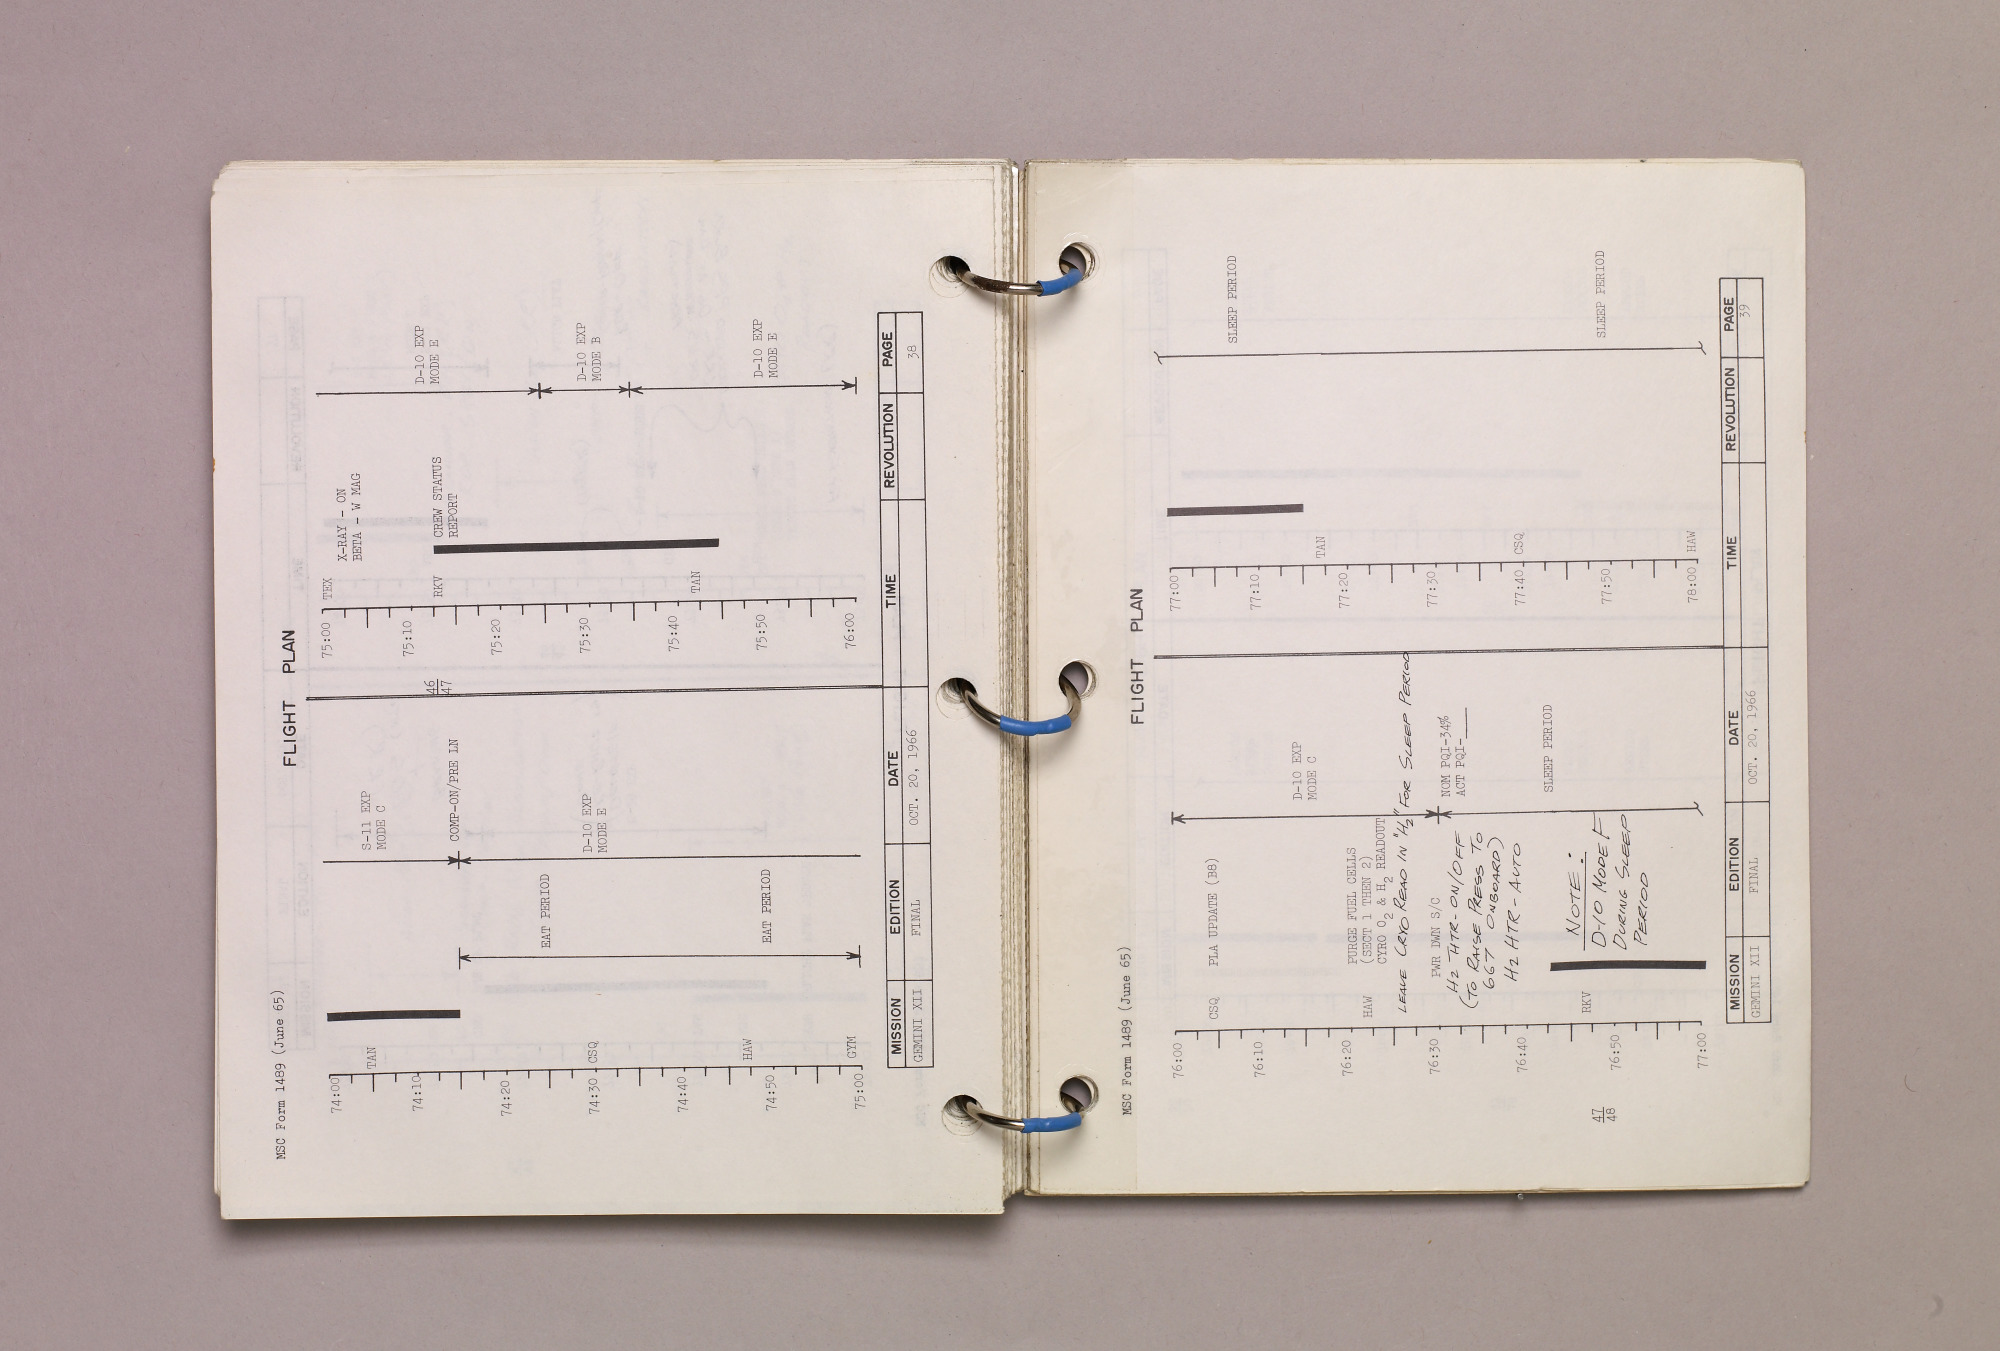 MSC Form 1489 (June 65)
FLIGHT PLAN
74:00
TAN
74:10
74:20
74:30
CSQ
74:40
HAW
74:50
75:00
GYM
S-11 EXP
MODE C
COMP-ON/PRE LN
EAT PERIOD
D-10 EXP
MODE E
EAT PERIOD
46
47
75:00
TEX
X-RAY - ON
BETA - W MAG
75:10
RKV
CREW STATUS
REPORT
75:20
75:30
75:40
TAN
75:50
76:00
D-10 EXP
MODE E
D-10 EXP
MODE B
D-10 EXP
MODE E
MISSION
EDITION
DATE
TIME
REVOLUTION
PAGE
GEMINI XII
FINAL
OCT. 20, 1966
38
MSC Form 1489 (June 65)
FLIGHT PLAN
76:00
CSQ
PLA UPDATE (B8)
76:10
D-10 EXP
MODE C
76:20
HAW
PURGE FUEL CELLS
(SECT 1 THEN 2)
CYRO O2 & H2 READOUT
LEAVE CRYO READ IN "H2" FOR SLEEP PERIOD
76:30
PWR DWN S/C
NOM PQI-34%
ACT PQI-____
H2 HTR - ON/OFF
(TO RAISE PRESS TO
667 ONBOARD)
H2 HTR - AUTO
76:40
SLEEP PERIOD
NOTE:
D-10 MODE F
DURING SLEEP
PERIOD
RKV
76:50
77:00
47
48
77:00
77:10
TAN
77:20
77:30
77:40
CSQ
77:50
78:00
HAW
SLEEP PERIOD
SLEEP PERIOD
MISSION
EDITION
DATE
TIME
REVOLUTION
PAGE
GEMINI XII
FINAL
OCT. 20, 1966
39